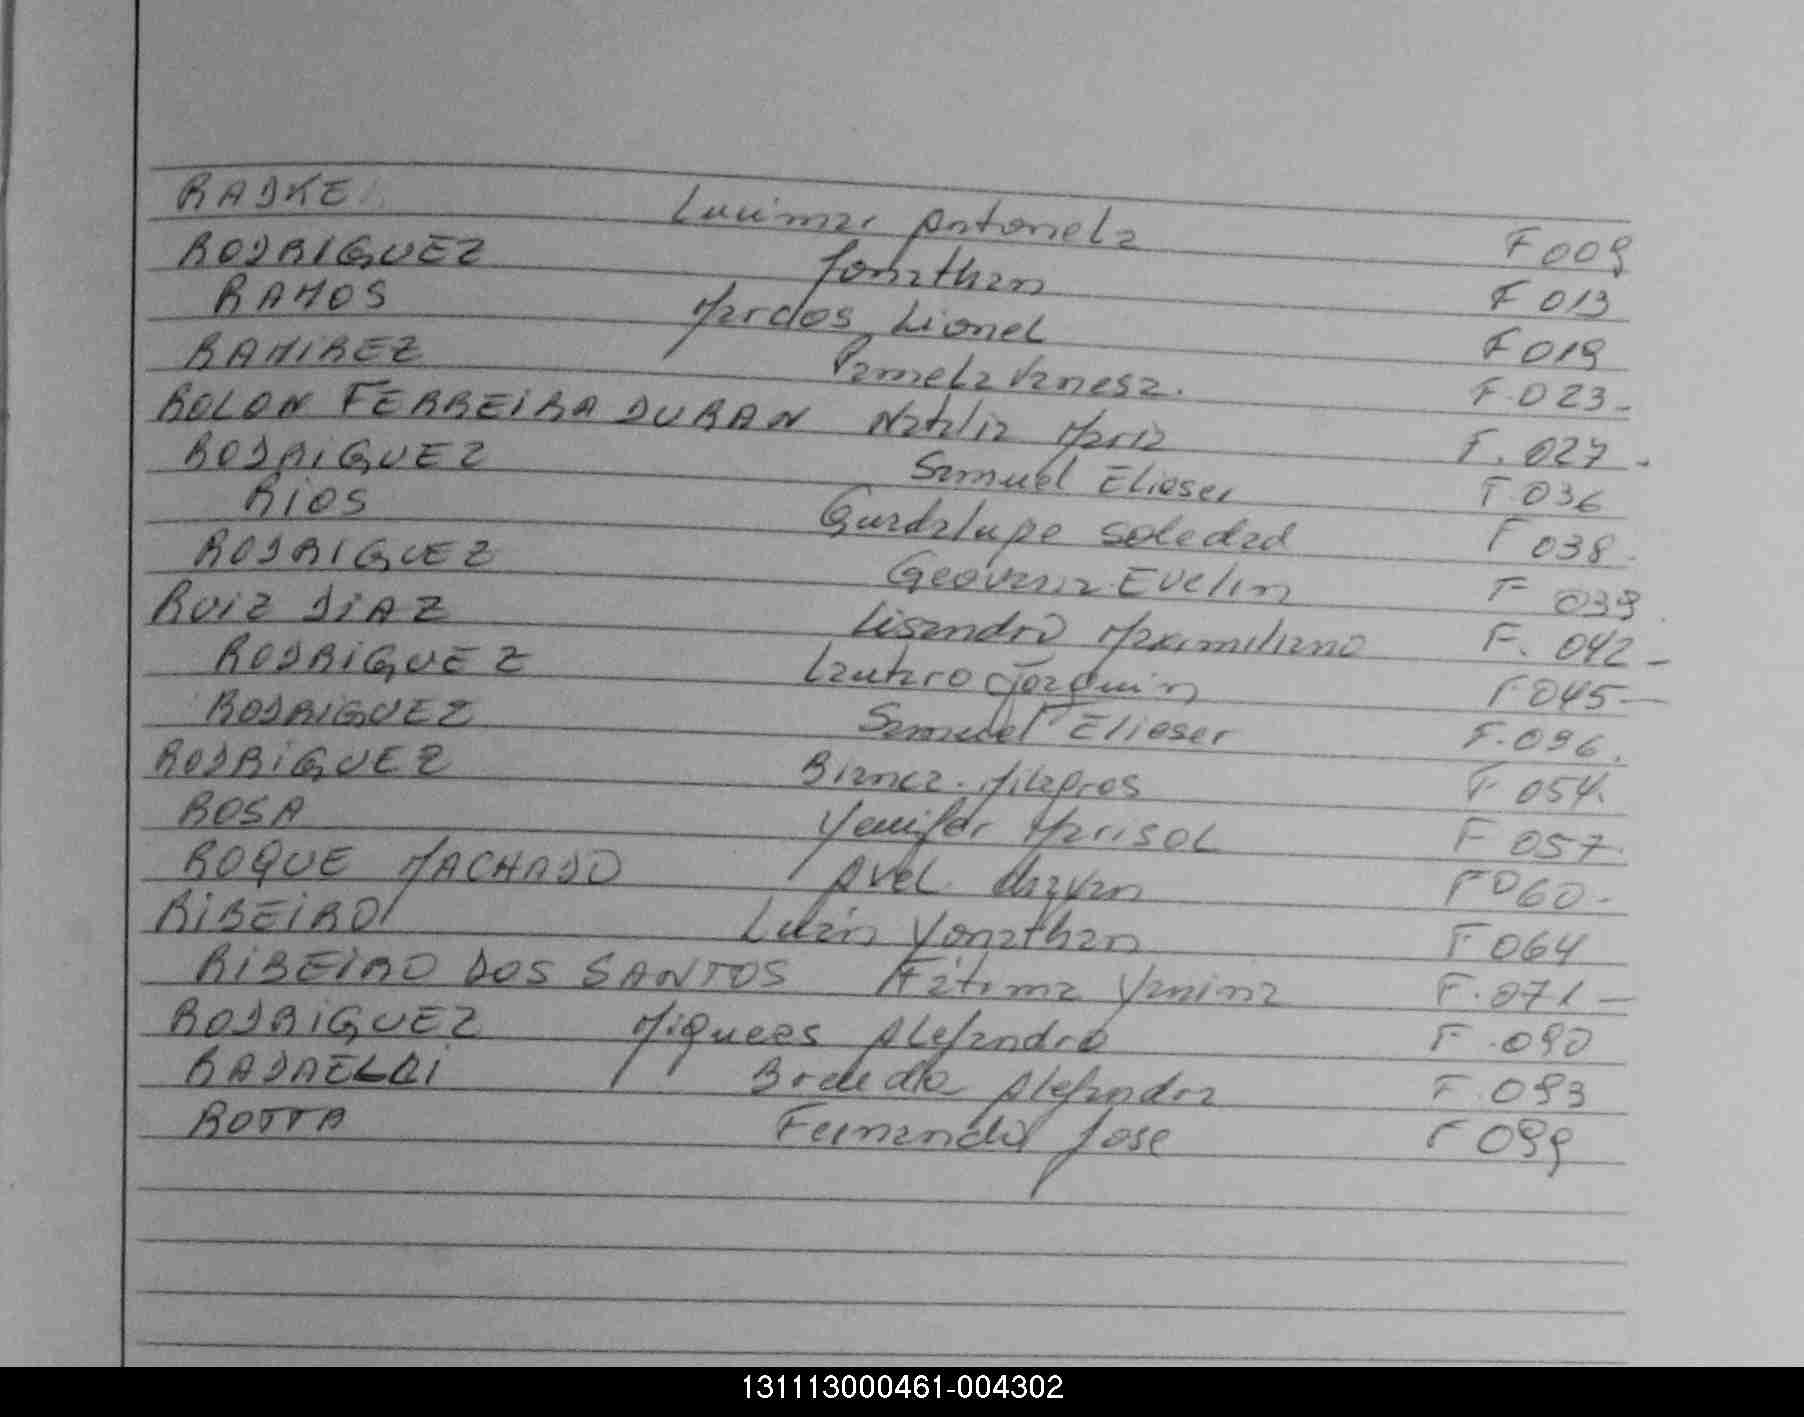 RADKE Lucimar Antonela F 009
RODRIGUEZ Jonathan F 013
RAMOS Marcos Lionel F 019
RAMIREZ Pamela Vanesa. F.023-
ROLON FERREIRA DURAN Natalia Maria F. 027-
RODRIGUEZ Samuel Elieser F.036
RIOS Guadalupe Soledad F 038-
RODRIGUEZ Geovana Evelin F 039.
RUIZ DIAZ Lisandro Maximiliano F. 042-
RODRIGUEZ Lautaro Joaquin F 045-
RODRIGUEZ Samuel Elieser
RODRIGUEZ Bianca. Milagros F 054.
ROSA Yenifer Marisol F 057.
ROQUE MACHADO F 060-
RIBEIRO Yonathan F 064
RIBEIRO DOS SANTOS Fatima Yanina F.071-
RODRIGUEZ Miqueas Alejandro F.090
Alejandra F.093
ROTTA Fernando Jose F 099
131113000461-004302